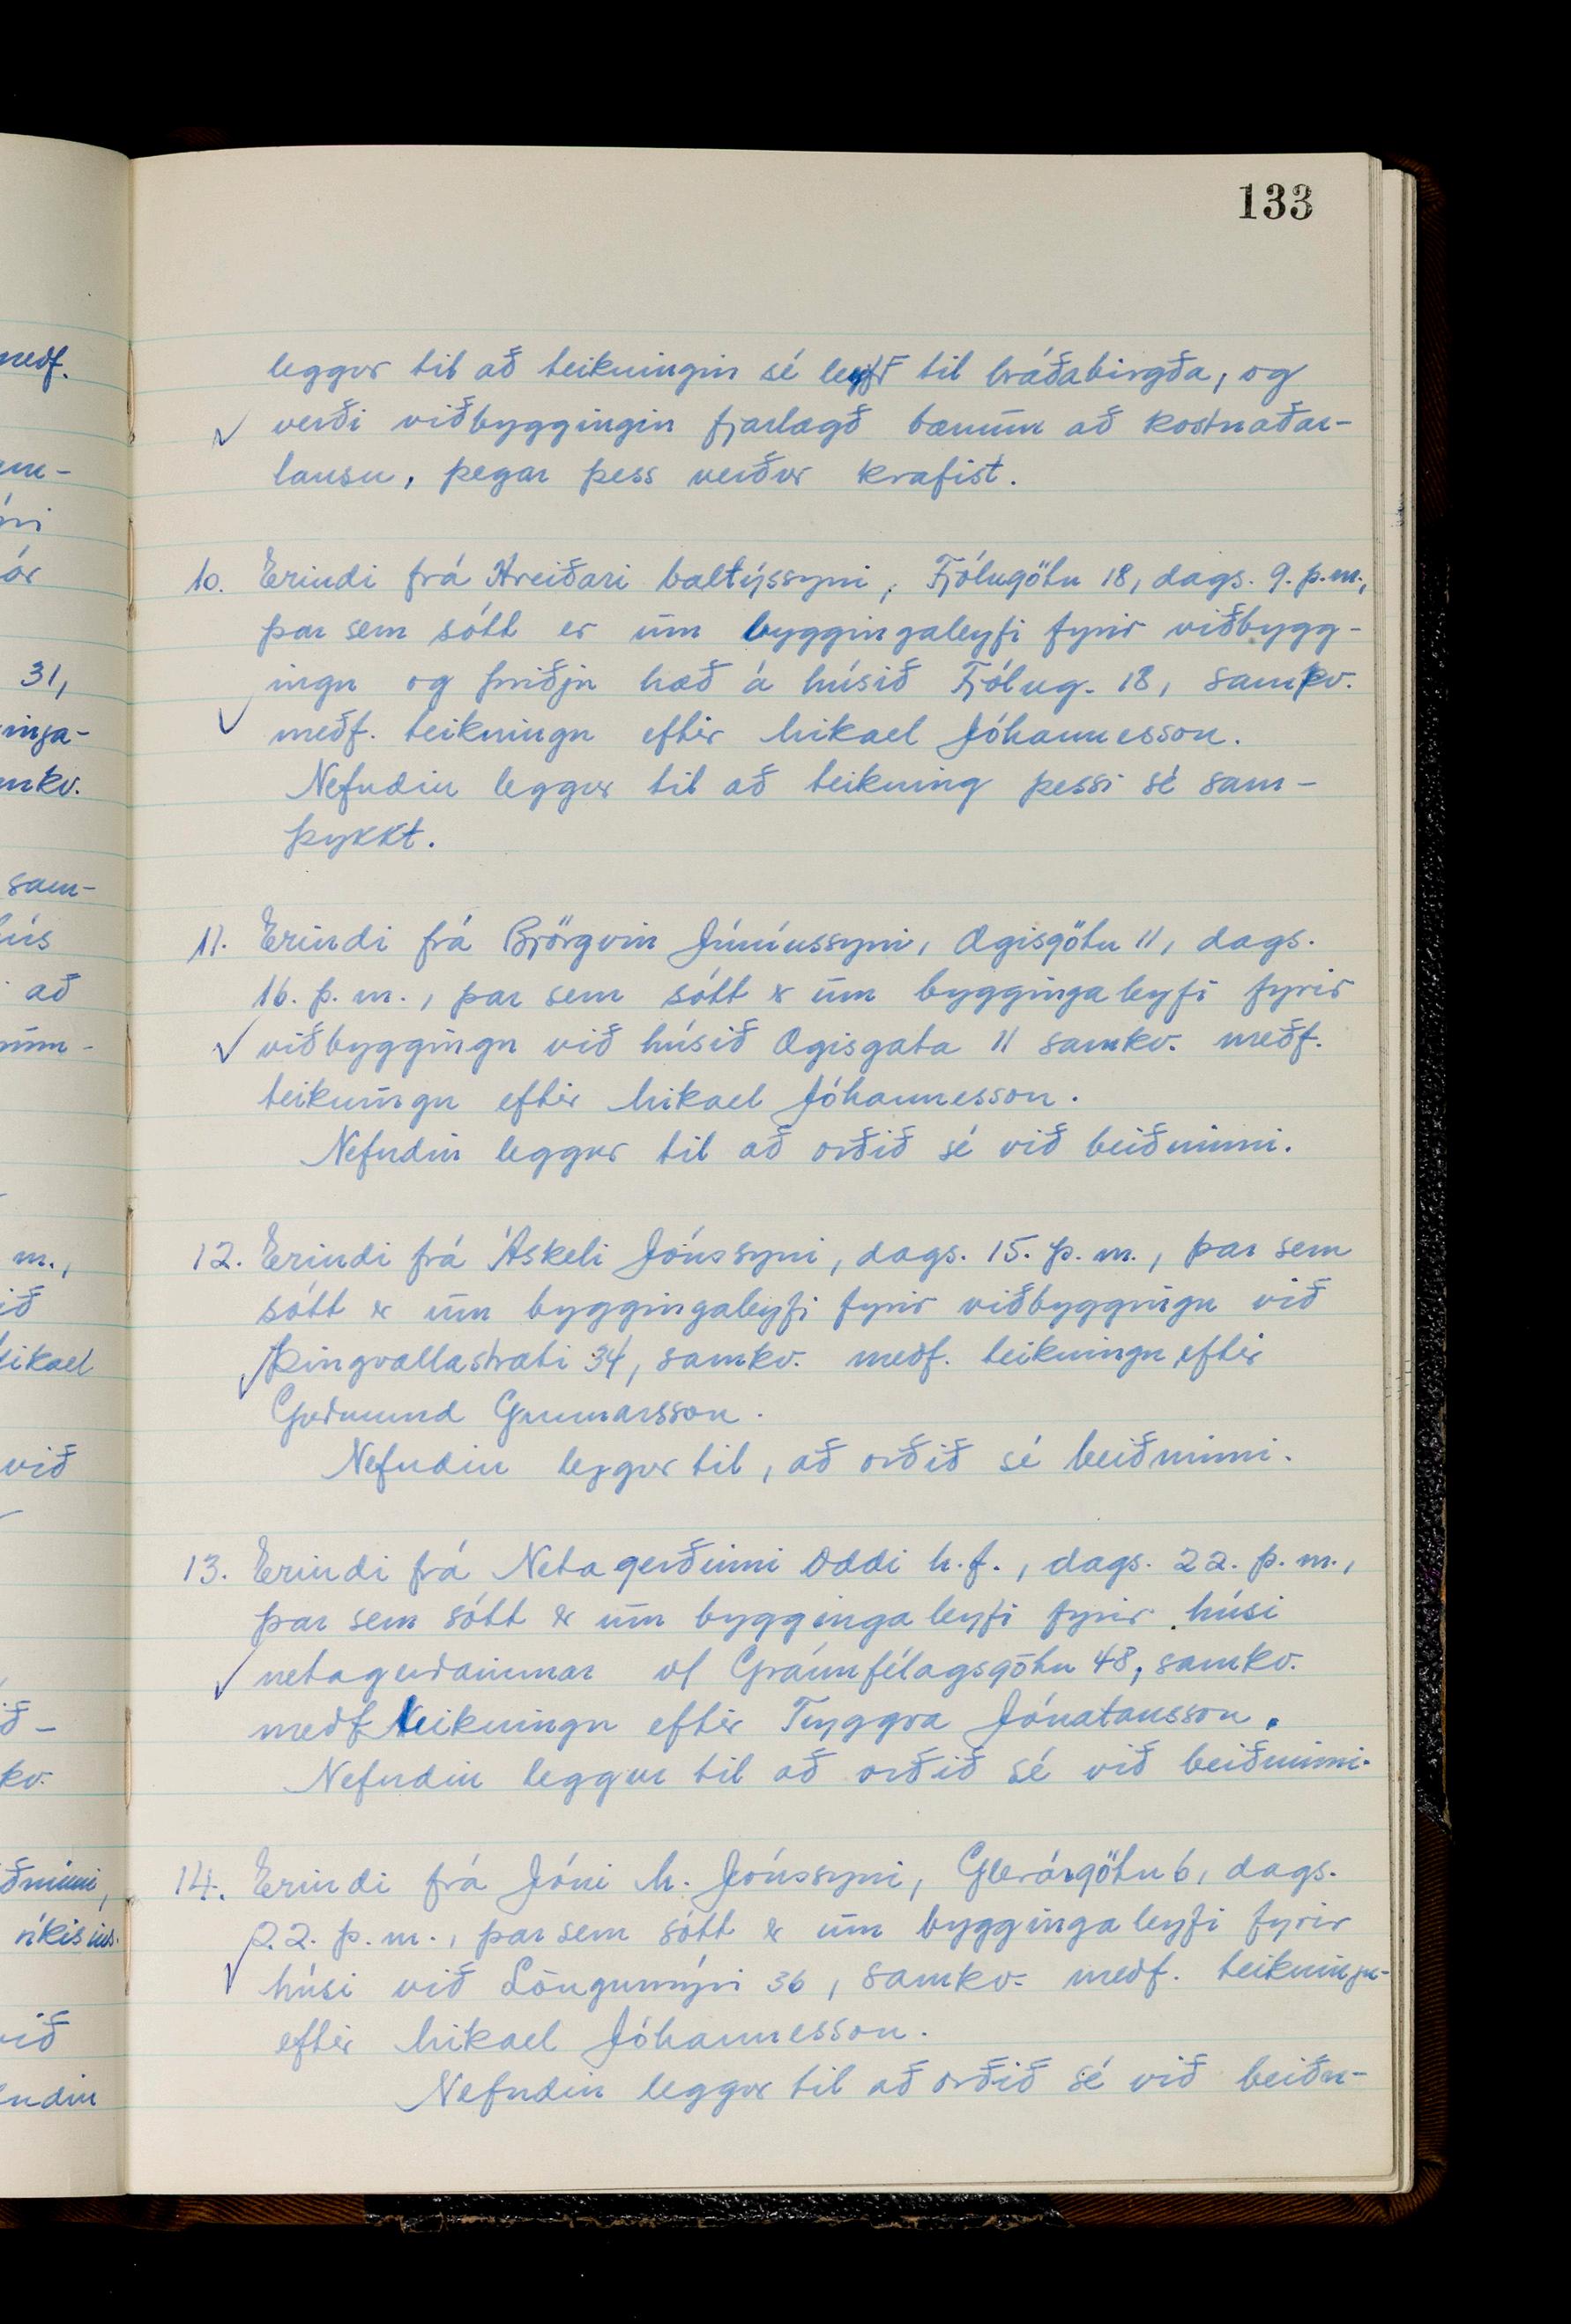 133
leggur til að teikningin sé leyfð til bráðabirgða, og
verði viðbyggingin fjarlægð bænum að kostnaðar-
lausu, þegar þess verður krafist.
10. Erindi frá Hreiðari Valtýssyni, Fjólugötu 18, dags. 9. þ.m.,
þar sem sótt er um byggingaleyfi fyrir viðbygg-
ingu og þriðju hæð á húsið Fjólug. 18, samkv.
meðf. teikningu eftir Mikael Jóhannesson.
Nefndin leggur til að teikning þessi sé sam-
þykkt.
11. Erindi frá Björgvin Júníussyni, Ægisgötu 11, dags.
16. þ.m., þar sem sótt er um byggingaleyfi fyrir
viðbyggingu við húsið Ægisgata 11 samkv. meðf.
teikningu eftir Mikael Jóhannesson.
Nefndin leggur til að orðið sé við beiðninni.
12. Erindi frá Áskeli Jónssyni, dags. 15. þ.m., þar sem
sótt er um byggingaleyfi fyrir viðbyggingu við
Þingvallastræti 34, samkv. meðf. teikningu eftir
Guðmund Gunnarsson.
Nefndin leggur til, að orðið sé beiðninni.
13. Erindi frá Netagerðinni Oddi h.f., dags. 22. þ.m.,
þar sem sótt er um byggingaleyfi fyrir húsi
netagerðarinnar v/ Gránufélagsgötu 48, samkv.
meðf. teikningu eftir Tryggva Jónatansson.
Nefndin leggur til að orðið sé við beiðninni.
14. Erindi frá Jóni M. Jónssyni, Glerárgötu 6, dags.
22. þ.m., þar sem sótt er um byggingaleyfi fyrir
húsi við Löngumýri 36, samkv. meðf. teikningu
eftir Mikael Jóhannesson.
Nefndin leggur til að orðið sé við beiðn-